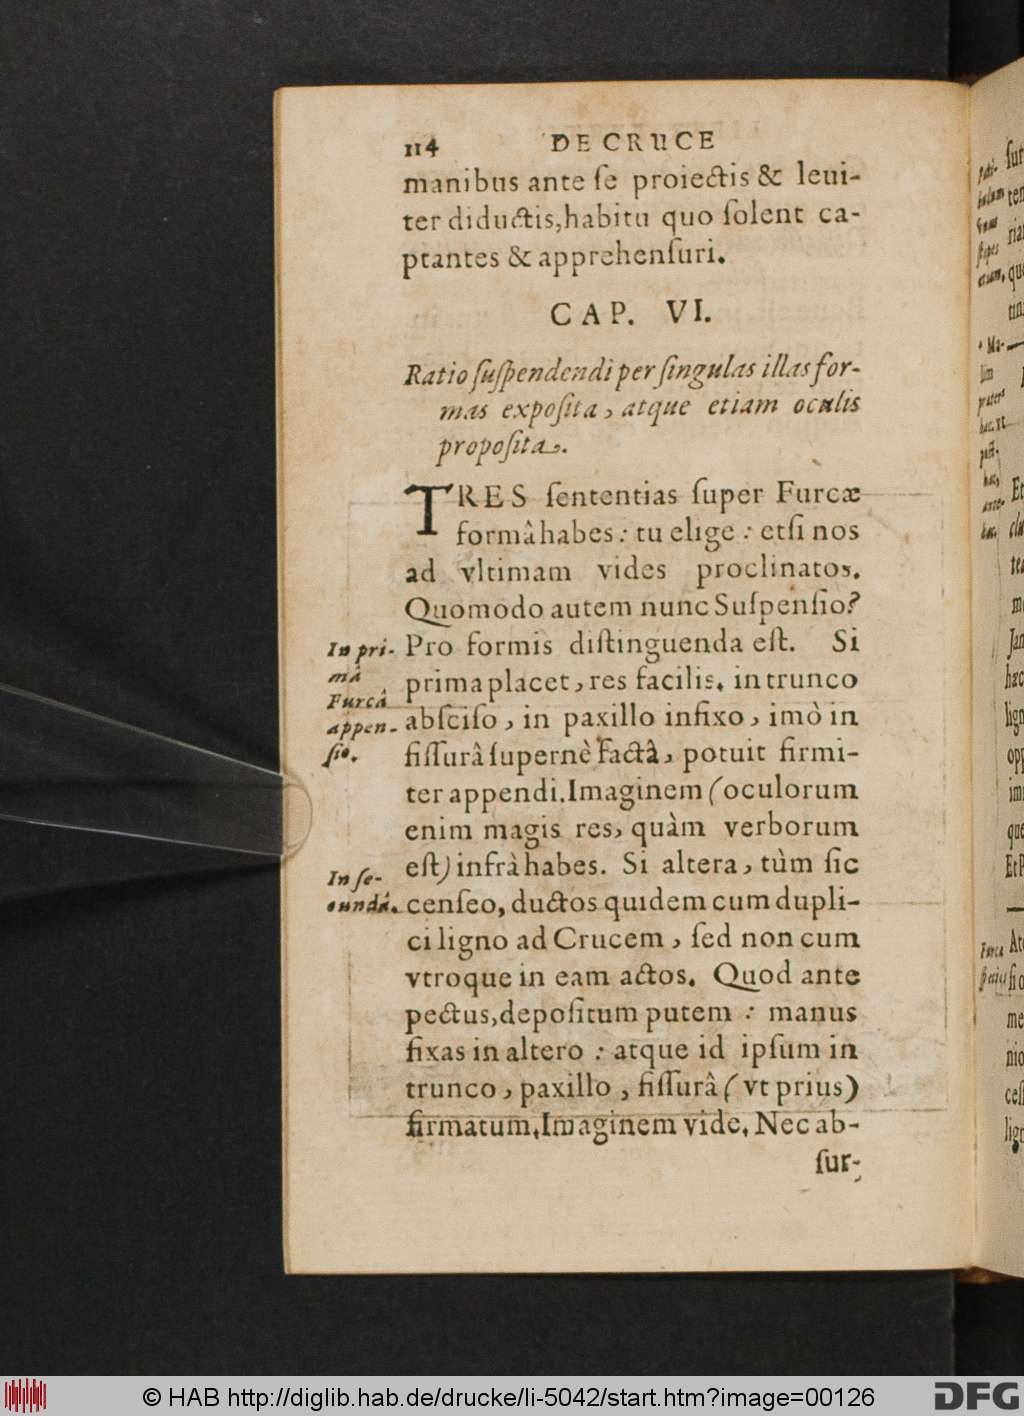 114 DE CRUCE
manibus ante ſe proiectis & leui-
ter diductis, habitu quo ſolent ca-
ptantes & apprehenſuri.
CAP. VI.
Ratio ſuſpendendi per ſingulas illas for-
mas expoſita, atque etiam oculis
propoſita.
TRES ſententias ſuper Furcæ
formâ habes: tu elige: etſi nos
ad vltimam vides proclinatos.
Quomodo autem nunc Suſpenſio?
Pro formis diſtinguenda eſt. Si
prima placet, res facilis. in trunco
abſciſo, in paxillo infixo, imò in
fiſſurâ ſupernè factâ, potuit firmi-
ter appendi. Imaginem (oculorum
enim magis res, quàm verborum
eſt) infrà habes. Si altera, tùm ſic
cenſeo, ductos quidem cum dupli-
ci ligno ad Crucem, ſed non cum
vtroque in eam actos. Quod ante
pectus, depoſitum putem: manus
fixas in altero: atque id ipſum in
trunco, paxillo, fiſſurâ (vt prius)
firmatum. Imaginem vide. Nec ab-
ſur-
In pri-
mâ
Furcâ
appen-
ſio.
In ſe-
cundâ.
© HAB http://diglib.hab.de/drucke/li-5042/start.htm?image=00126
DFG